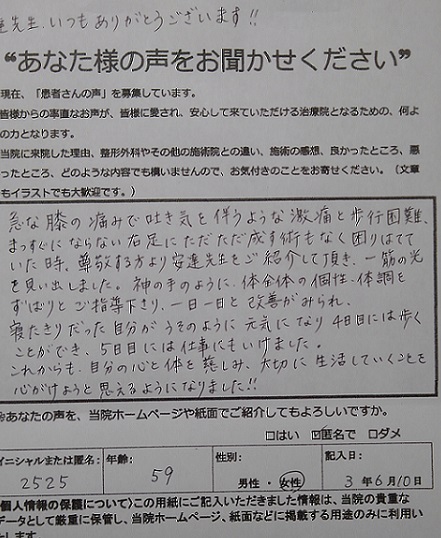 先生、いつもありがとうございます!!
“あなた様の声をお聞かせください”
現在、「患者さんの声」を募集しています。
皆様からの率直なお声が、皆様に愛され、安心して来ていただける治療院となるための、何よ
の力となります。
当院に来院した理由、整形外科やその他の施術院との違い、施術の感想、良かったところ、悪
ったところ、どのような内容でも構いませんので、お気付きのことをお寄せください。（文章
もイラストでも大歓迎です。）
急な膝の痛みで吐き気を伴うような激痛と歩行困難、
まっすぐにならない右足にただただ成す術もなく困りはてて
いた時。尊敬する方より安達先生をご紹介して頂き、一筋の光
を見い出しました。神の手のように、体全体の個性、体調と
ずばりとご指導下さり、一日一日と改善がみられ、
寝たきりだった自分がうそのように元気になり4日目には歩く
ことができ、5日目には仕事にもいけました。
これからも、自分の心と体を慈しみ、大切に生活していくことを
心がけようと思えるようになりました!!
※あなたの声を、当院ホームページや紙面でご紹介してもよろしいですか。
□はい ☑匿名で □ダメ
イニシャルまたは匿名: 年齢: 性別: 記入日:
2525 59 男性・女性 3年6月10日
個人情報の保護について〉この用紙にご記入いただきました情報は、当院の貴重な
データとして厳重に保管し、当院ホームページ、紙面などに掲載する用途のみに利用い
します。